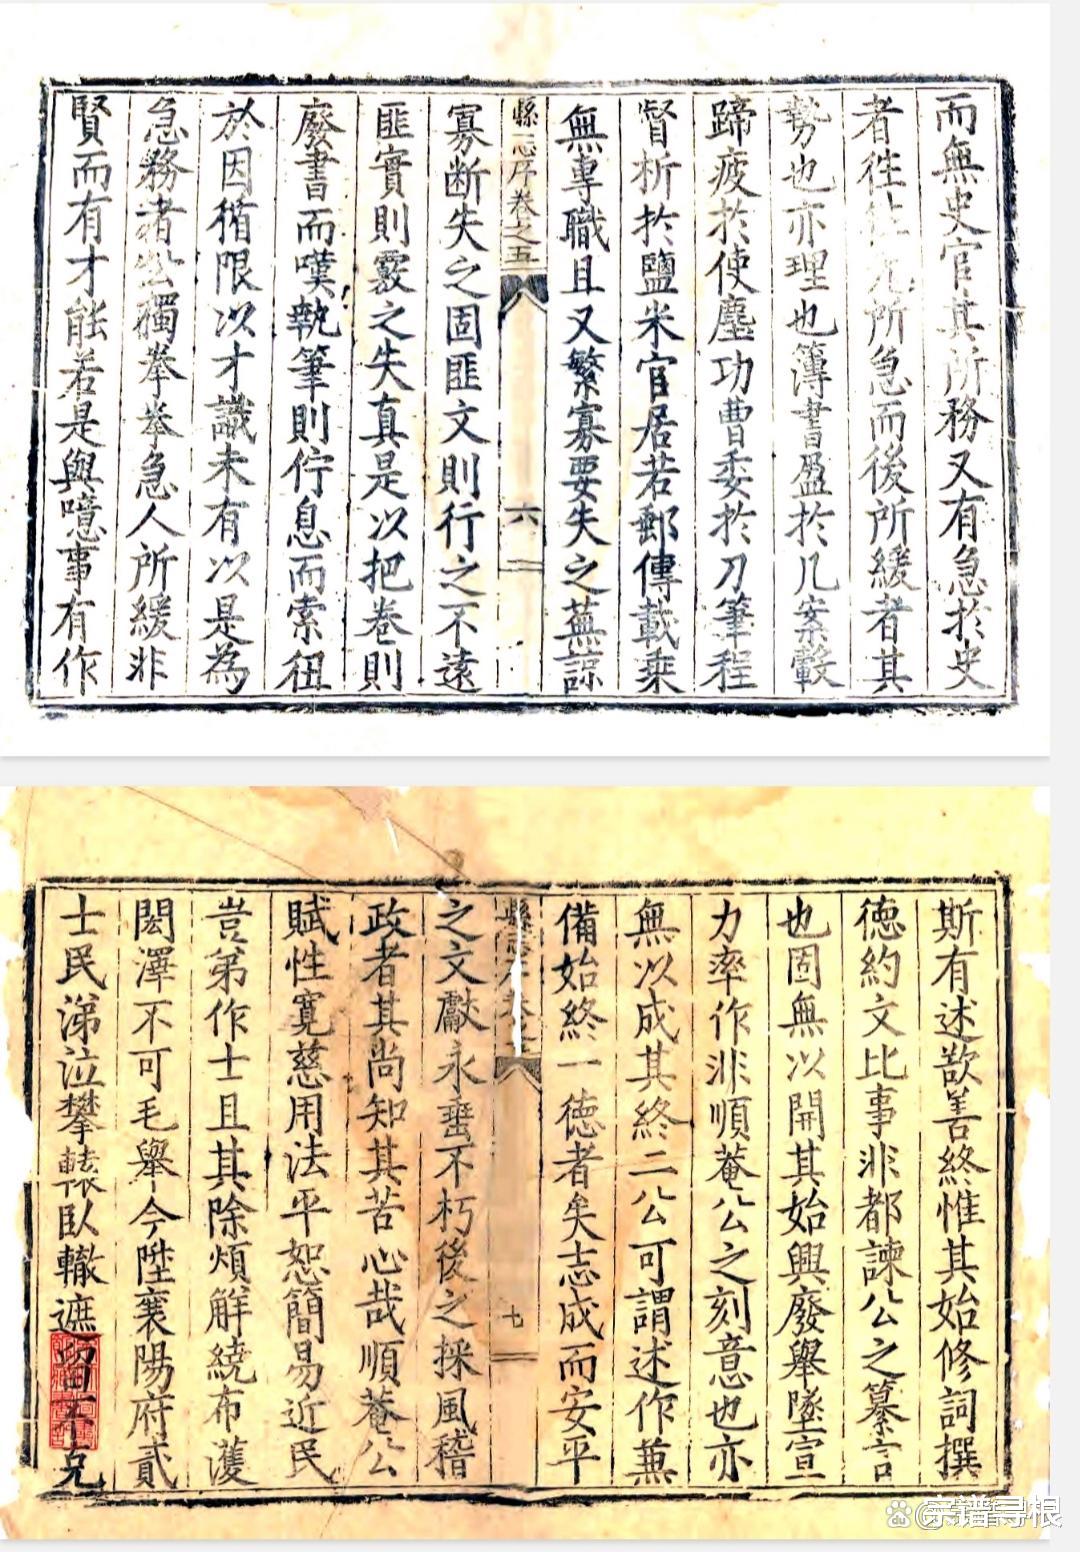 而無史官其所務又有急於史
者徃徃先所急而後所緩者其
勢也亦理也簿書盈於几案轂
蹄疲於使塵功曹委於刀筆程
督析於鹽米官居若郵傳載乗
無專職且又繁寡要失之蕪諒
縣志序卷之五
六
寡断失之固匪文則行之不遠
匪實則覈之失真是以把卷則
廢書而嘆執筆則佇息而索徂
於因循限以才識未有以是為
急務者公獨拳拳急人所緩非
賢而有才能若是與噫事有作
斯有述歆善終惟其始修詞撰
徳約文比事非都諫公之纂言
也固無以開其始興廢舉墜宣
力率作非順菴公之刻意也亦
無以成其終二公可謂述作兼
備始終一德者矣志成而安平
縣卷
七
之文獻永垂不朽後之採風稽
政者其尚知其苦心哉順菴公
賦性寬慈用法平恕簡易近民
豈第作士且其除煩解繞布濩
閎澤不可毛舉今陞襄陽府貳
士民涕泣攀轅臥轍遮留不克
@宗譜寻根